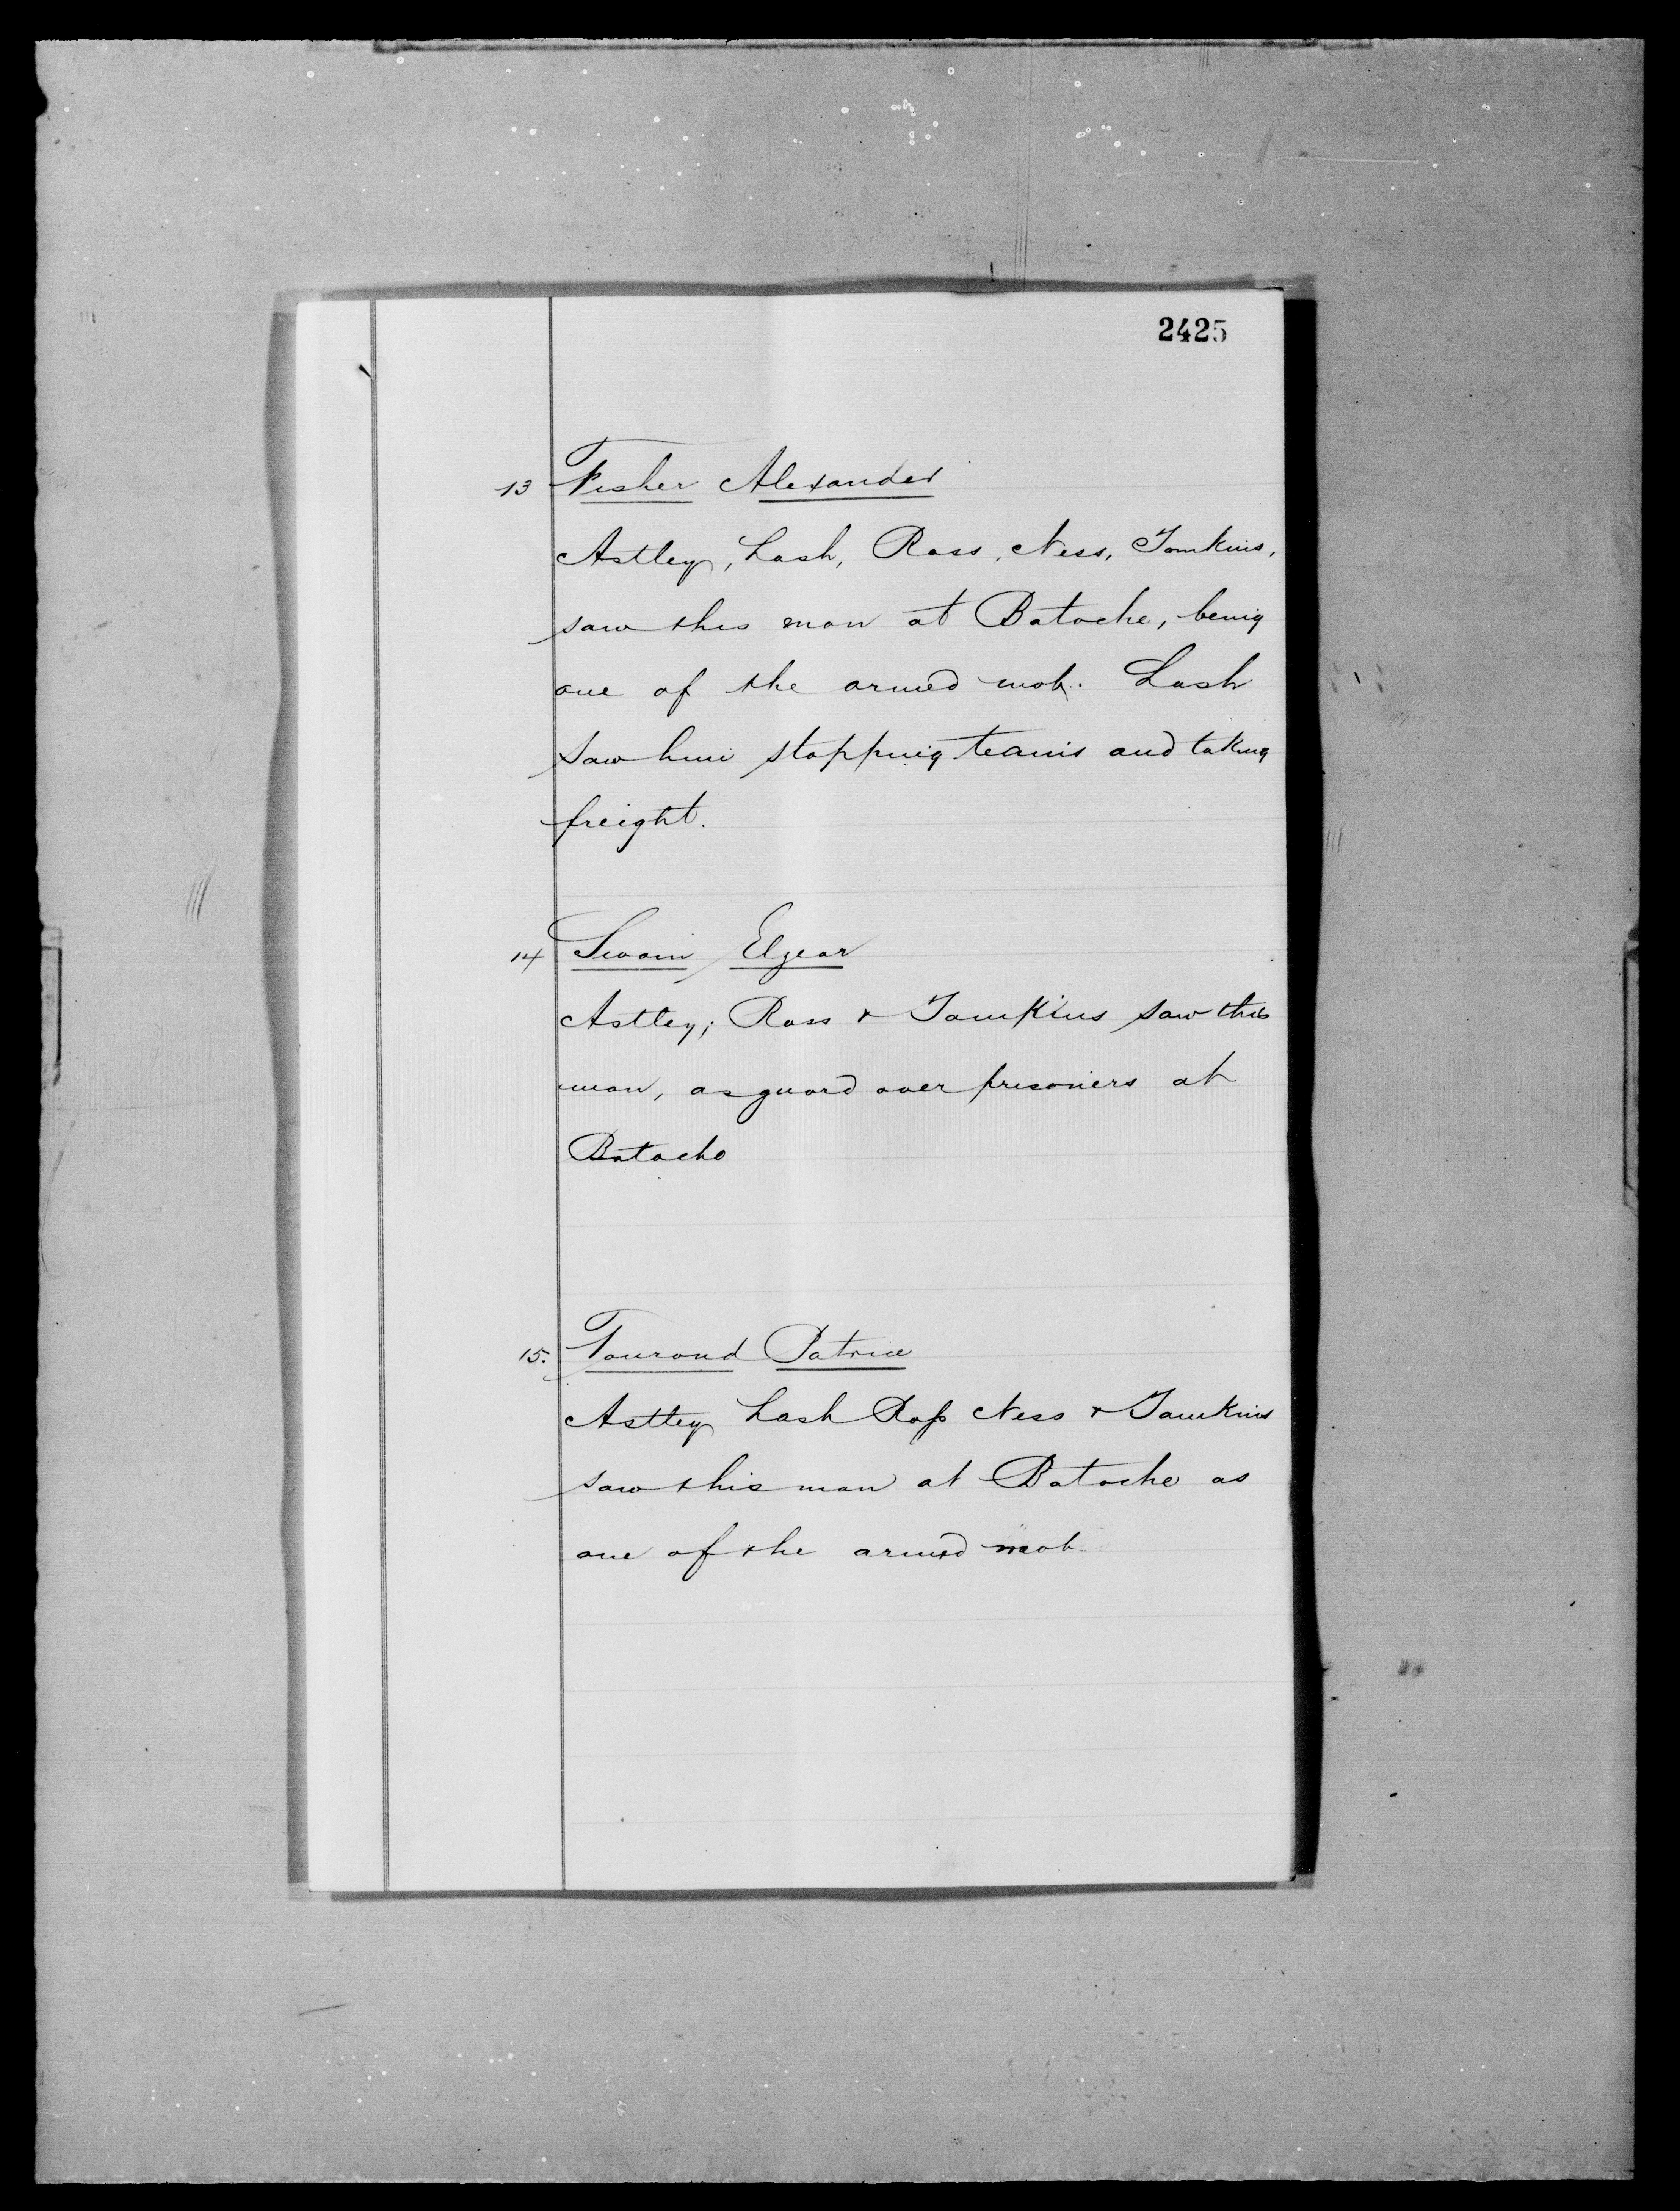 2425
13 Fisher Alexander
Astley, Lash, Ross, Ness, Tomkins,
saw this man at Batoche, being
one of the armed mob. Lash
saw him stopping teams and taking
freight.
14 Swain Elzear
Astley, Ross & Tomkins saw this
man, as guard over prisoners at
Batoche
15. Tourond Patrice
Astley Lash Ross Ness & Tomkins
saw this man at Batoche as
one of the armed mob